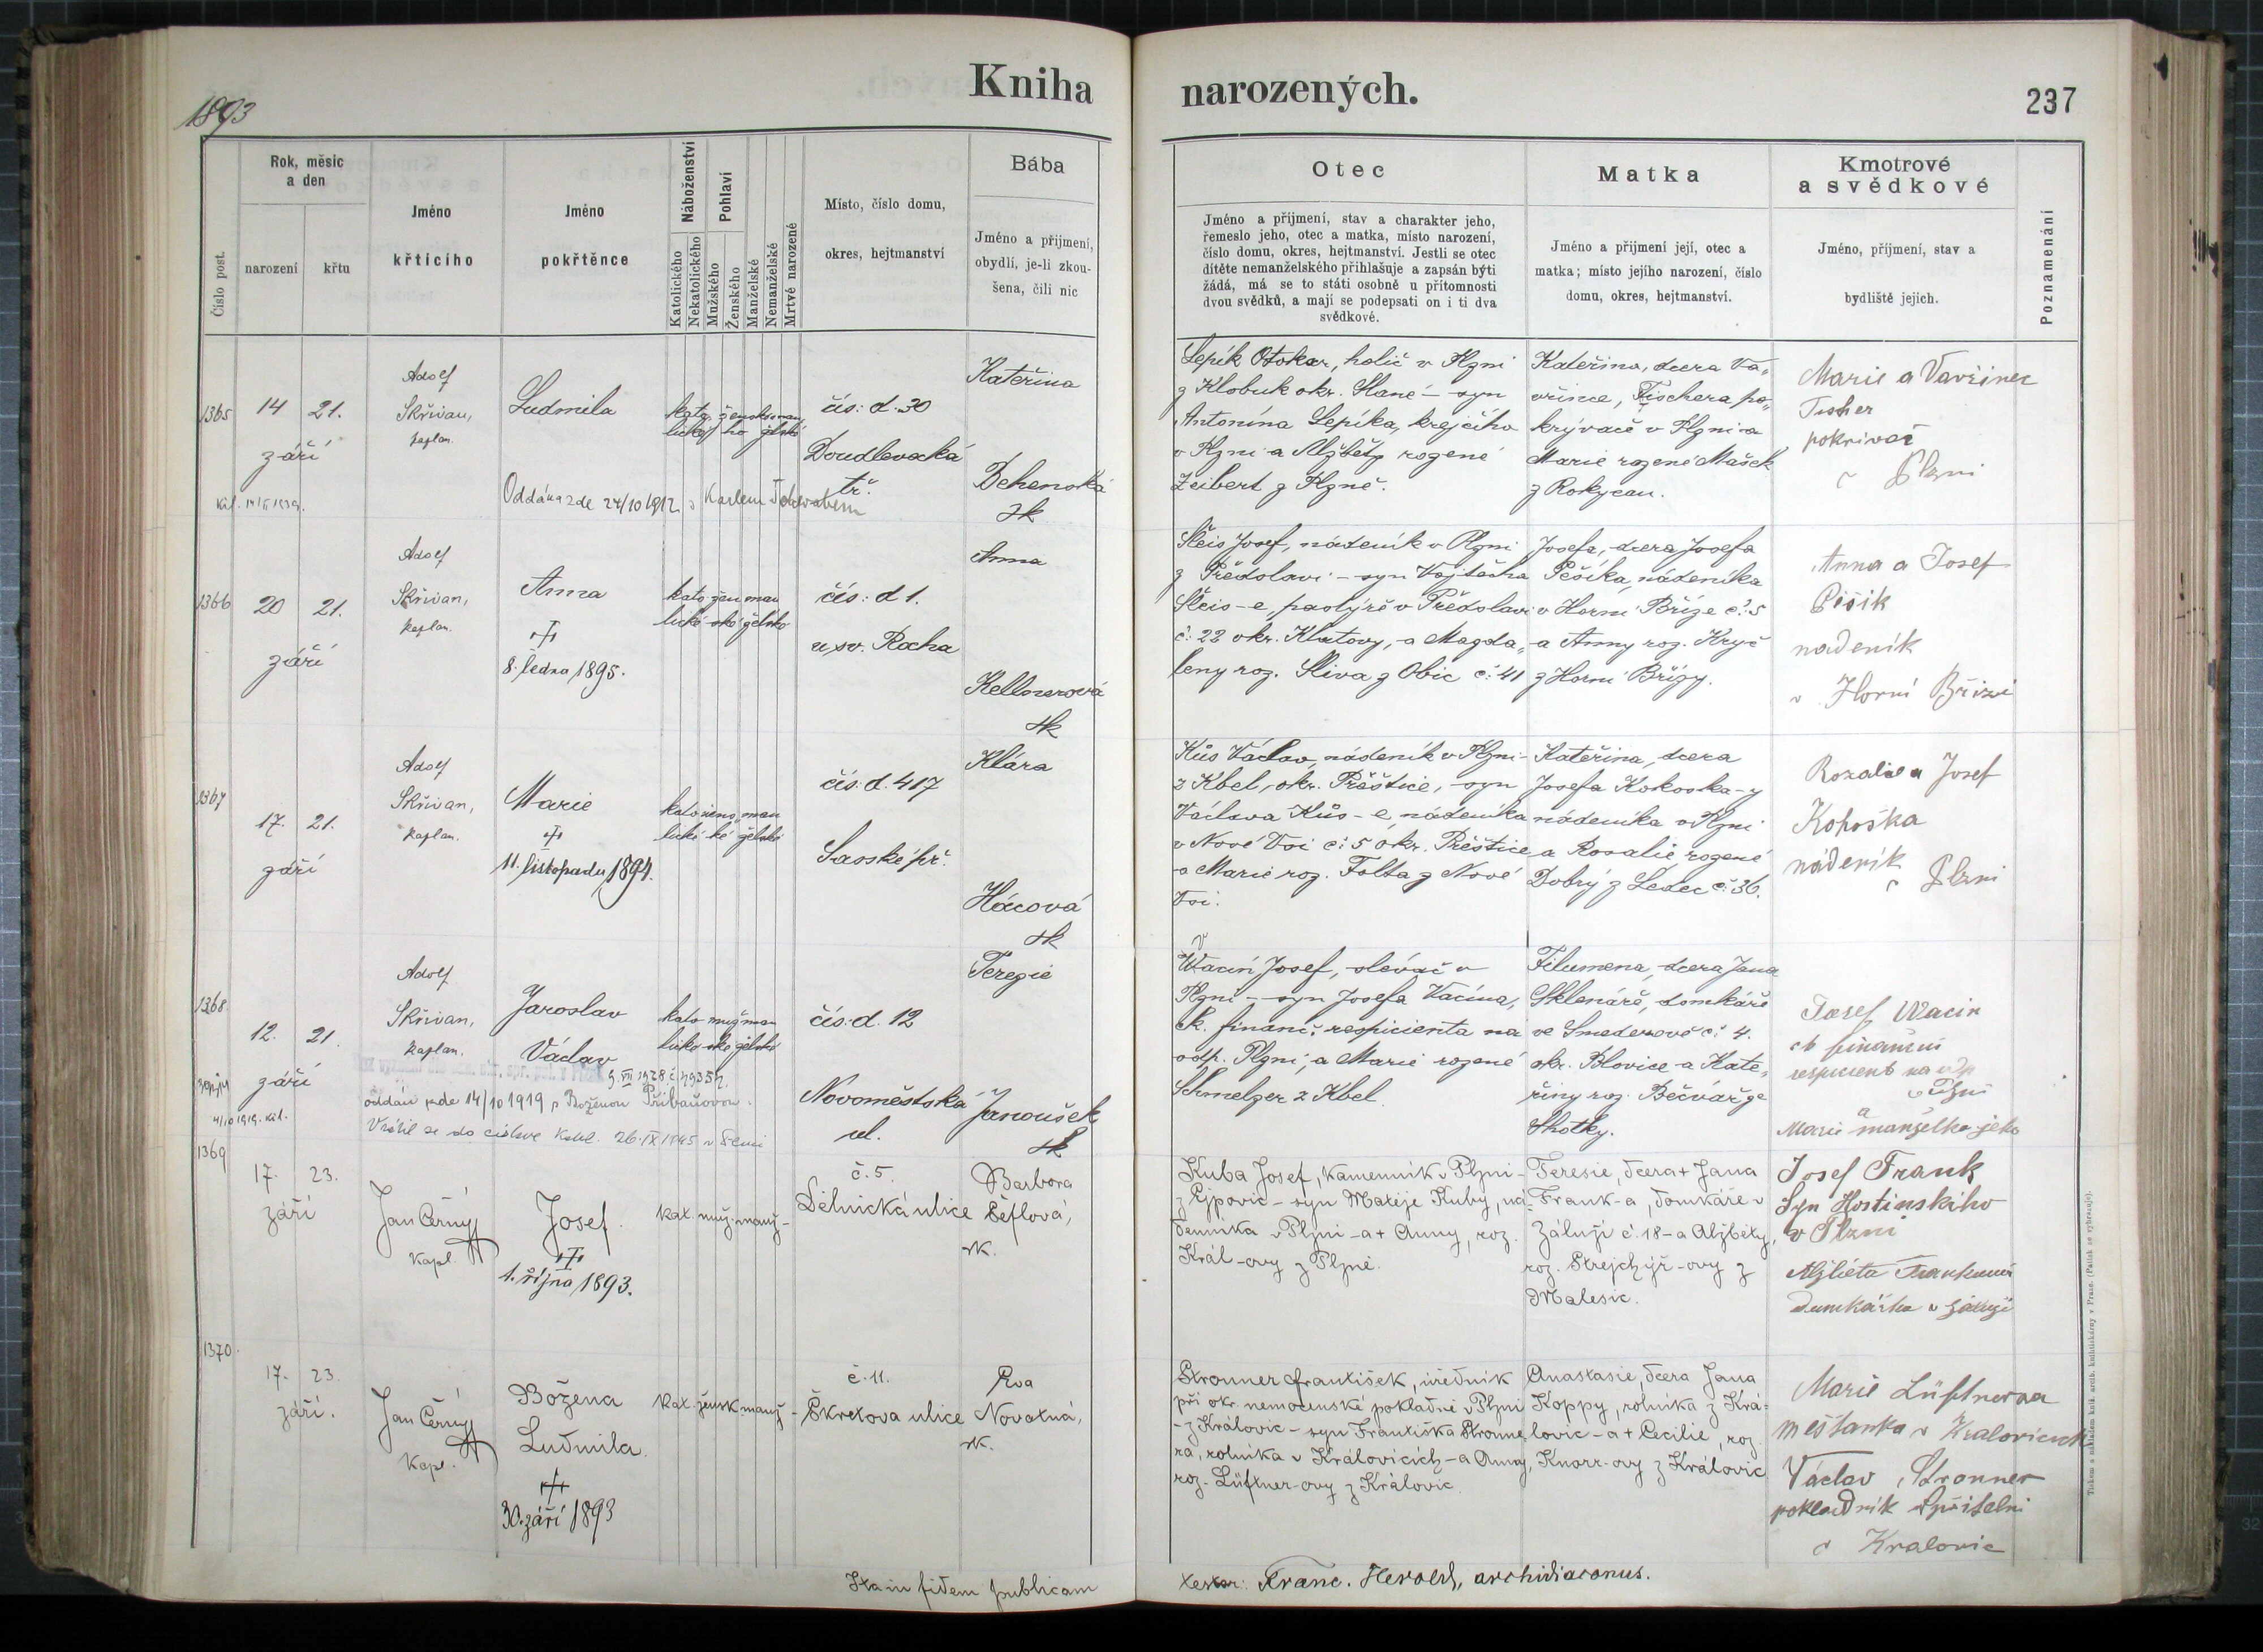 1893
Kniha
narozených.
237
Číslo post.
Rok, měsíc
a den
narození
křtu
Jméno
křtícího
Jméno
pokřtěnce
Náboženství
Katolického
Nekatolického
Pohlaví
Mužského
Ženského
Manželské
Nemanželské
Mrtvé narozené
Místo, číslo domu,
okres, hejtmanství
Bába
Jméno a přijmení,
obydlí, je-li zkou-
šena, čili nic
Otec
Jméno a příjmení, stav a charakter jeho,
řemeslo jeho, otec a matka, místo narození,
číslo domu, okres, hejtmanství. Jestli se otec
dítěte nemanželského přihlašuje a zapsán býti
žádá, má se to státi osobně u přítomnosti
dvou svědků, a mají se podepsati on i ti dva
svědkové.
Matka
Jméno a přijmení její, otec a
matka; místo jejího narození, číslo
domu, okres, hejtmanství.
Kmotrové
a svědkové
Jméno, příjmení, stav a
bydliště jejich.
Poznamenání
1365
14 21.
září
Adolf
Skřivan,
kaplan.
Ludmila
Oddána zde 24/10 1912 s Karlem
kato žensko man
lické ho želské
čís: d. 30
Doudlevecká
tř.
Kateřina
Dehenská
zk
Lepík Otokar, holič v Plzni
z Klobuk okr. Slané – syn
Antonína Lepíka, krejčího
v Plzni a Alžběty rozené
Zeibert z Plzně.
Kateřina, dcera Va„
vřince, Fischera po„
krývače v Plzni a
Marie rozené Mašek
z Rokycan.
Marie a Vavřinec
Fischer
pokrivač
v Plzni
1366
20 21.
září
Adolf
Skřivan,
kaplan.
Anna
8. ledna 1895.
kato žen man
lické ské želské
čís: d 1.
u sv. Rocha
Anna
Kellnerová
zk
Šleis Josef, nádeník v Plzni
z Předslavi – syn Vojtěcha
Šleis-e, pastýře v Předslavi
č: 22 okr. Klatovy, a Magda„
leny roz. Sliva z Obic č: 41
Josefa, dcera Josefa
Pešíka, nádeníka
v Horní Bříze č: 5
a Anny roz. Kryč
z Horní Břízy.
Anna a Josef
Pěšik
nadenik
v Horní Břizi
1367
17. 21.
září
Adolf
Skřivan,
kaplan.
Marie
11. listopadu 1894.
kato žens man
lické ké želské
čís: d. 417
Saské př.
Klára
Hácová
zk
Kůs Václav, nádeník v Plzni
z Kbel, okr. Přeštice, syn
Václava Kůs-e, nádeníka
v Nové Vsi č: 5 okr. Přeštice
a Marie roz. Folta z Nové
Vsi.
Kateřina, dcera
Josefa Kokoska-y
nádeníka v Plzni
a Rosalie, rozené
Dobrý z Ledec č: 36.
Rozalie a Josef
Kohoška
náděnik
v Plzni
1368
12. 21.
září
Adolf
Skřivan,
kaplan.
Jaroslav
Václav
oddán zde 14/10 1919 s Boženou Přibáňovou.
Vrátil se do církve kátol. 26.IX 1945 v Plzni
kato muž man
lické ské želské
čís: d. 12
Novoměstská
ul.
Terezie
Janoušek
zk
Wacín Josef, slévač v
Plzni – syn Josefa Vacína,
ck. financ. respicienta na
odp. Plzni, a Marie rozené
Schmelzer z Kbel.
Filumena, dcera Jana
Sklenáře, domkáře
ve Smederově č: 4.
okr. Blovice a Kate„
řiny roz. Bečvář ze
Lhotky.
Josef Wacin
ck finanční
respicient na odp
v Plzni
a
Marie manželka jeho
1369
17. 23.
září
Jan Černý
kapl.
Josef.
1. října 1893.
kat. muž. manž-
č. 5.
Dělnická ulice
Barbora
Šeflová,
zk.
Kuba Josef, kamenník v Plzni
z Ejpovic – syn Matěje Kuby, ná-
denníka v Plzni – a + Anny, roz.
Král-ovy z Plzně.
Teresie, dcera + Jana
Frank-a, domkáře v
Záluží č. 18 – a Alžběty,
roz. Strejchýř-ovy z
Malesic.
Josef Frank
Syn Hostinského
v Plzni
Alžběta Franková
domkářka v záluží
1370.
17. 23.
září.
Jan Černý
kapl.
Božena
Ludmila.
30. září 1893
kat. žensk. manž-
č. 11.
Škretova ulice
Eva
Novotná,
zk.
Stronner František, úředník
při okr. nemocenské pokladně v Plzni
– z Královic – syn Františka Stronne-
ra, rolníka v Královicích – a Anny,
roz. Lüftner-ovy z Královic.
Anastasie, dcera Jana
Koppy, rolníka z Krá-
lovic – a + Cecilie, roz.
Knorr-ovy z Královic
Marie Lüftnerova
mešťanka v Kralovicích
Václav Stronner
pokladník spořitelni
v Kralovic
Ita in fidem publicam
testor: Franc. Herold, archidiaconus.